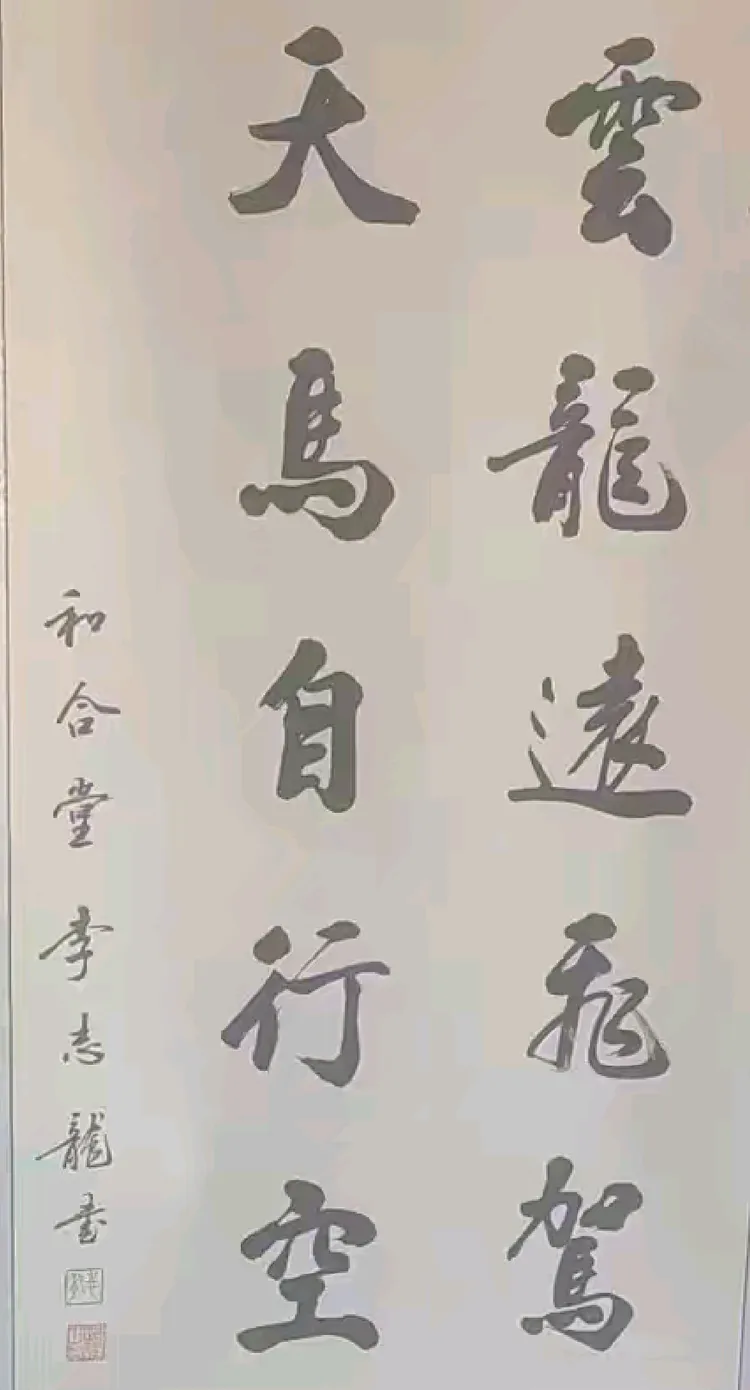 雲龍遠飛駕
天馬自行空
和合堂李志龍書